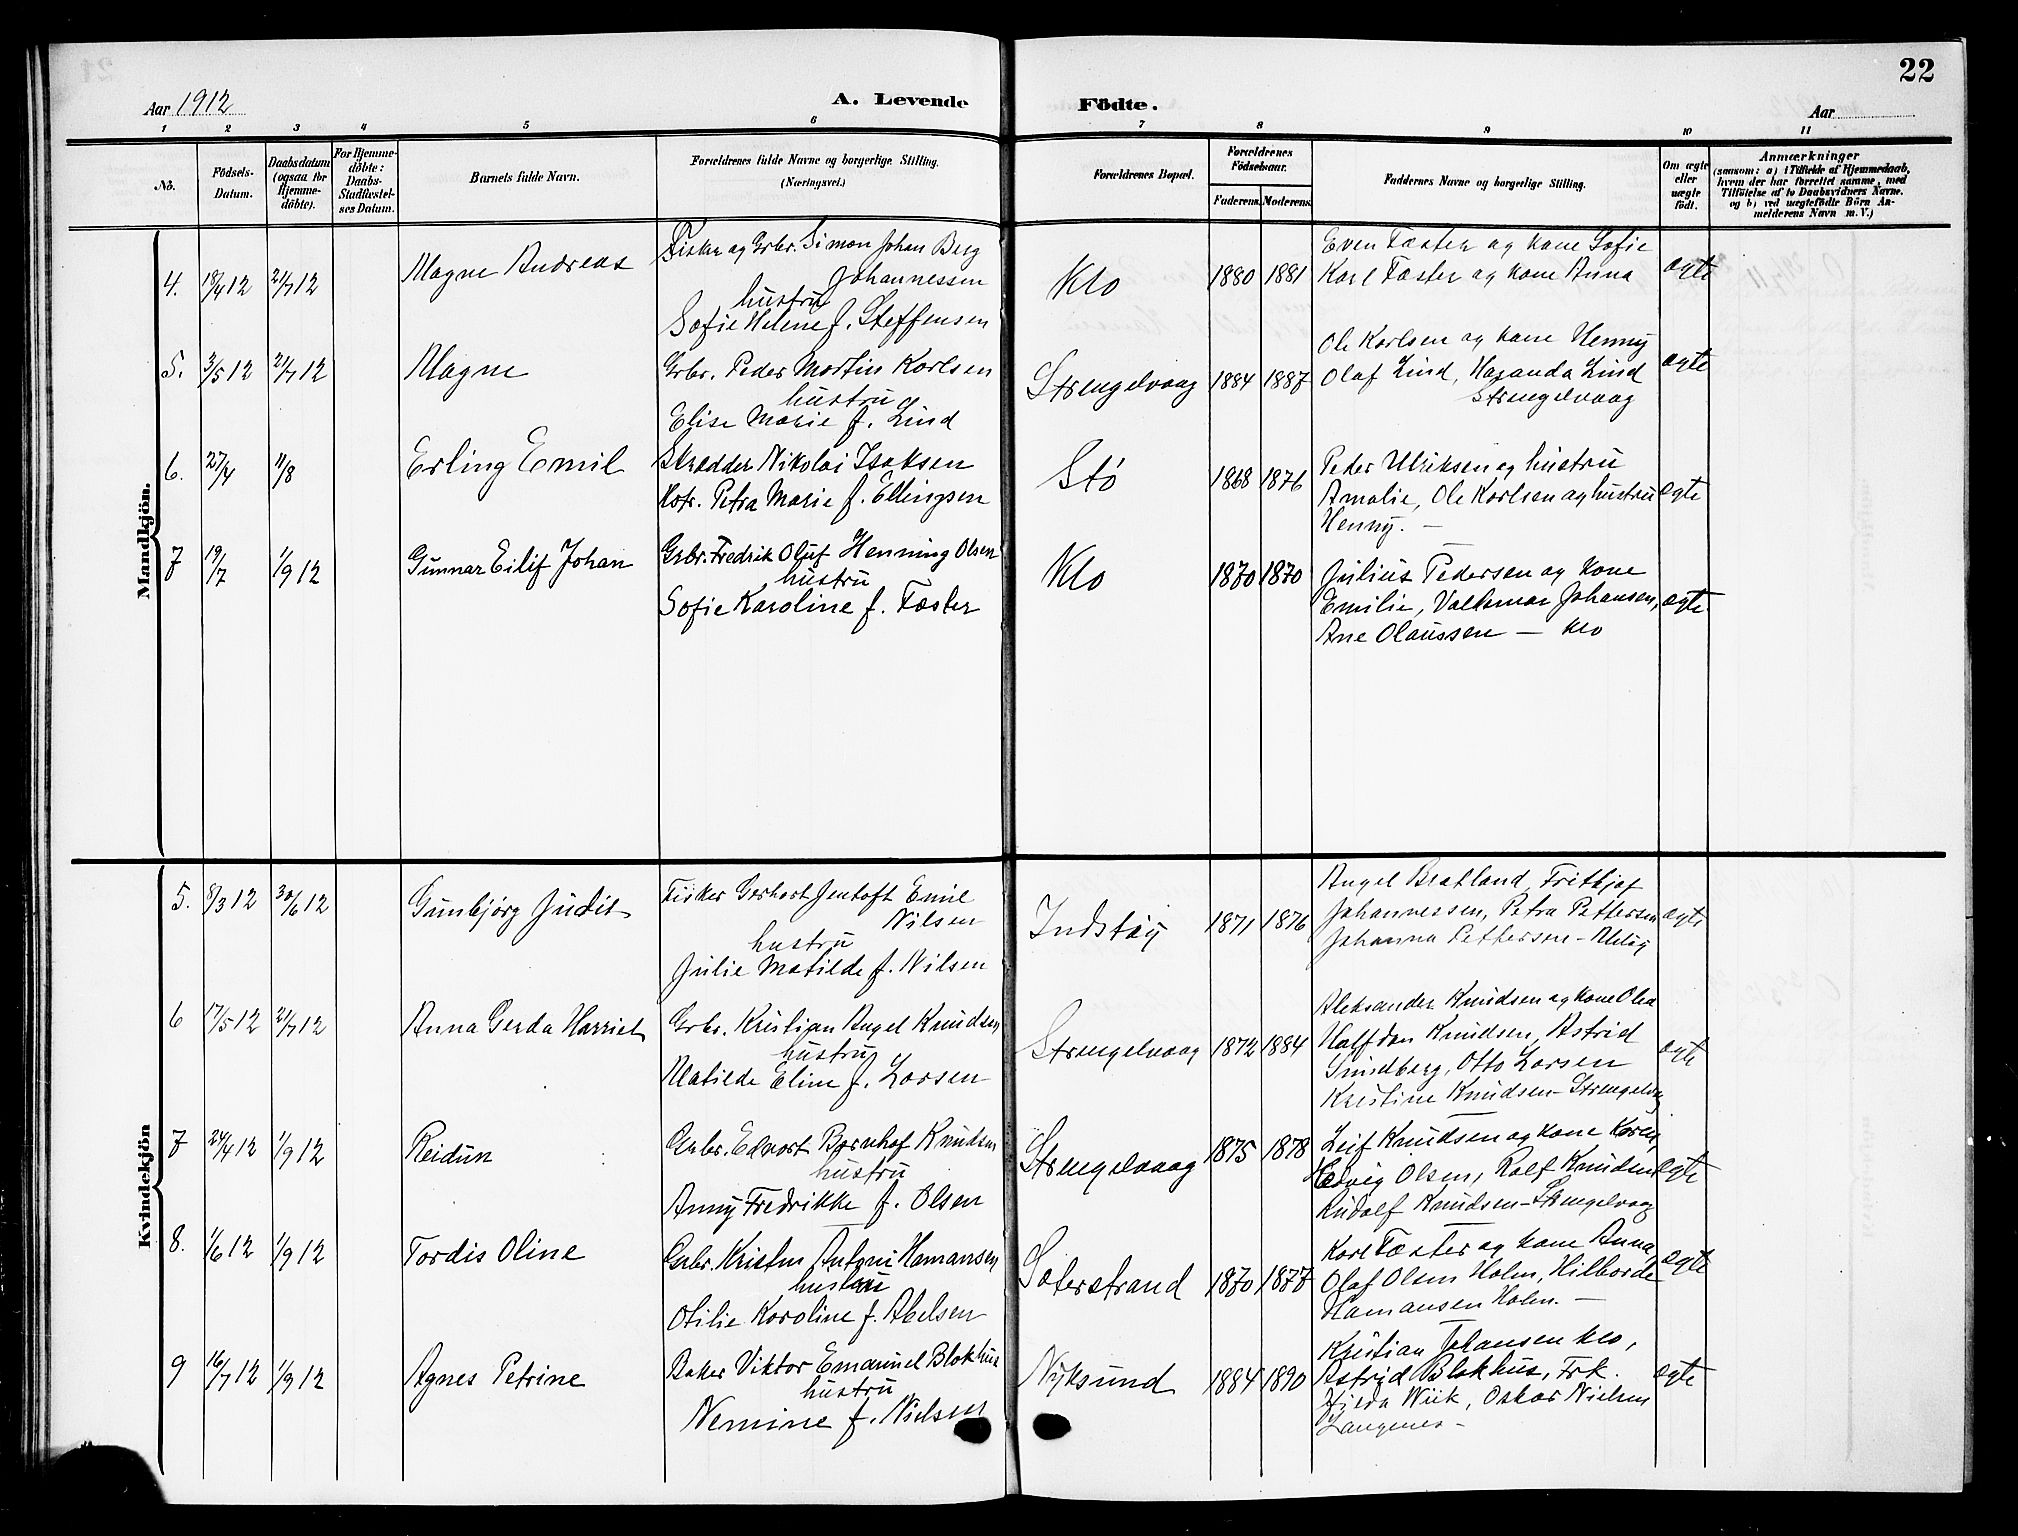 22
Aar 1912
A. Levende
Födte.
Aar
1 2 3 4 5 6 7 8 9 10 11
No.
Födsels-Datum.
Daabsdatum (ogsaa for Hjemme-döbte).
For Hjemme-döbte: Daabs-Stadfæstel-ses Datum.
Barnets fulde Navn.
Forældrenes fulde Navne og borgerlige Stilling. (Næringsvei.)
Forældrenes Bopæl.
Forældrenes Födselsaar.
Faderens. Moderens.
Faddernes Navne og borgerlige Stilling.
Om ægte eller uægte født.
Anmærkninger
(saasom: a) i Tilfælde af Hjemmedaab, hvem der har forrettet samme, med Tilföielse af to Daabsvidners Navne. og b) ved uægtefödte Börn An-melderens Navn m. V.)
Mandkjön.
4. 18/4 12 21/7 12 Magne Andreas
Fisker og Grbr. Simon Johan Berg
Johannessen
hustru
Sofie Helene f. Steffensen
Klo 1880 1881
Even Fæster og kone Sofie
Karl Fæster og kone Anna
ægte
5. 3/5 12 21/7 12 Magne
Grbr. Peder Martin Karlsen
hustru
Elise Marie f. Lind
Strengelvaag 1884 1887
Ole Karlsen og kone Henny
Olaf Lind, Haganda Lind
Strengelvaag
ægte
6. 27/4 11/8 Erling Emil
Skrædder Nikolai Isaksen
Hstr. Petra Marie f. Ellingsen
Stø 1868 1876
Peder Ulriksen og hustru
Amalie, Ole Karlsen og hustru
Henny. —
ægte
7 19/7 1/9 12 Gunnar Eilif Johan
Grbr. Fredrik Oluf Henning Olsen
hustru
Sofie Karoline f. Fæster
Klo 1870 1870
Julius Pedersen og kone
Emilie, Valdemar Johansen,
Ane Olaussen — Klo
ægte
Kvindekjön
5. 8/3 12 30/6 12 Gunbjørg Judit
Fisker Gerhart Jentoft Emil
Nilsen
hustru
Julie Matilde f. Nilsen
Indstøy 1871 1876
Angel Bratland, Fritjof
Johannessen, Petra Pettersen
Johanna Pettersen -
ægte
6 17/5 12 21/7 12 Anna Gerda Harriet
Grbr. Kristian Angel Knudsen
hustru
Matilde Eline f. Larsen
Strengelvaag 1872 1884
Aleksander Knudsen og kone Olea
Halfdan Knudsen, Astrid
Sundberg, Otto Larsen
Kristine Knudsen - Strengelvaag
ægte
7 24/4 12 1/9 12 Reidun
Grbr. Edvart Bernhof Knudsen
hustru
Anny Fredrikke f. Olsen
Strengelvaag 1875 1878
Leif Knudsen og kone Karen,
Hedvig Olsen, Ralf Knudsen
Rudolf Knudsen - Strengelvaag
ægte
8. 1/6 12 1/9 12 Tordis Oline
Grbr. Kristen Antoni Hamansen
hustru
Otilie Karoline f. Abelsen
Sæterstrand 1870 1877
Karl Fæster og kone Anna,
Olaf Olsen Holm, Hilborde
Hamansen Holm. —
ægte
9 16/7 12 1/9 12 Agnes Petrine
Baker Viktor Emanuel Blokhus
hustru
Nemine f. Nielsen
Nyksund 1884 1890
Kristian Johansen Klo,
Astrid Blokhus, Frk.
Wiik, Oskar Nielsen
Langenes -
ægte